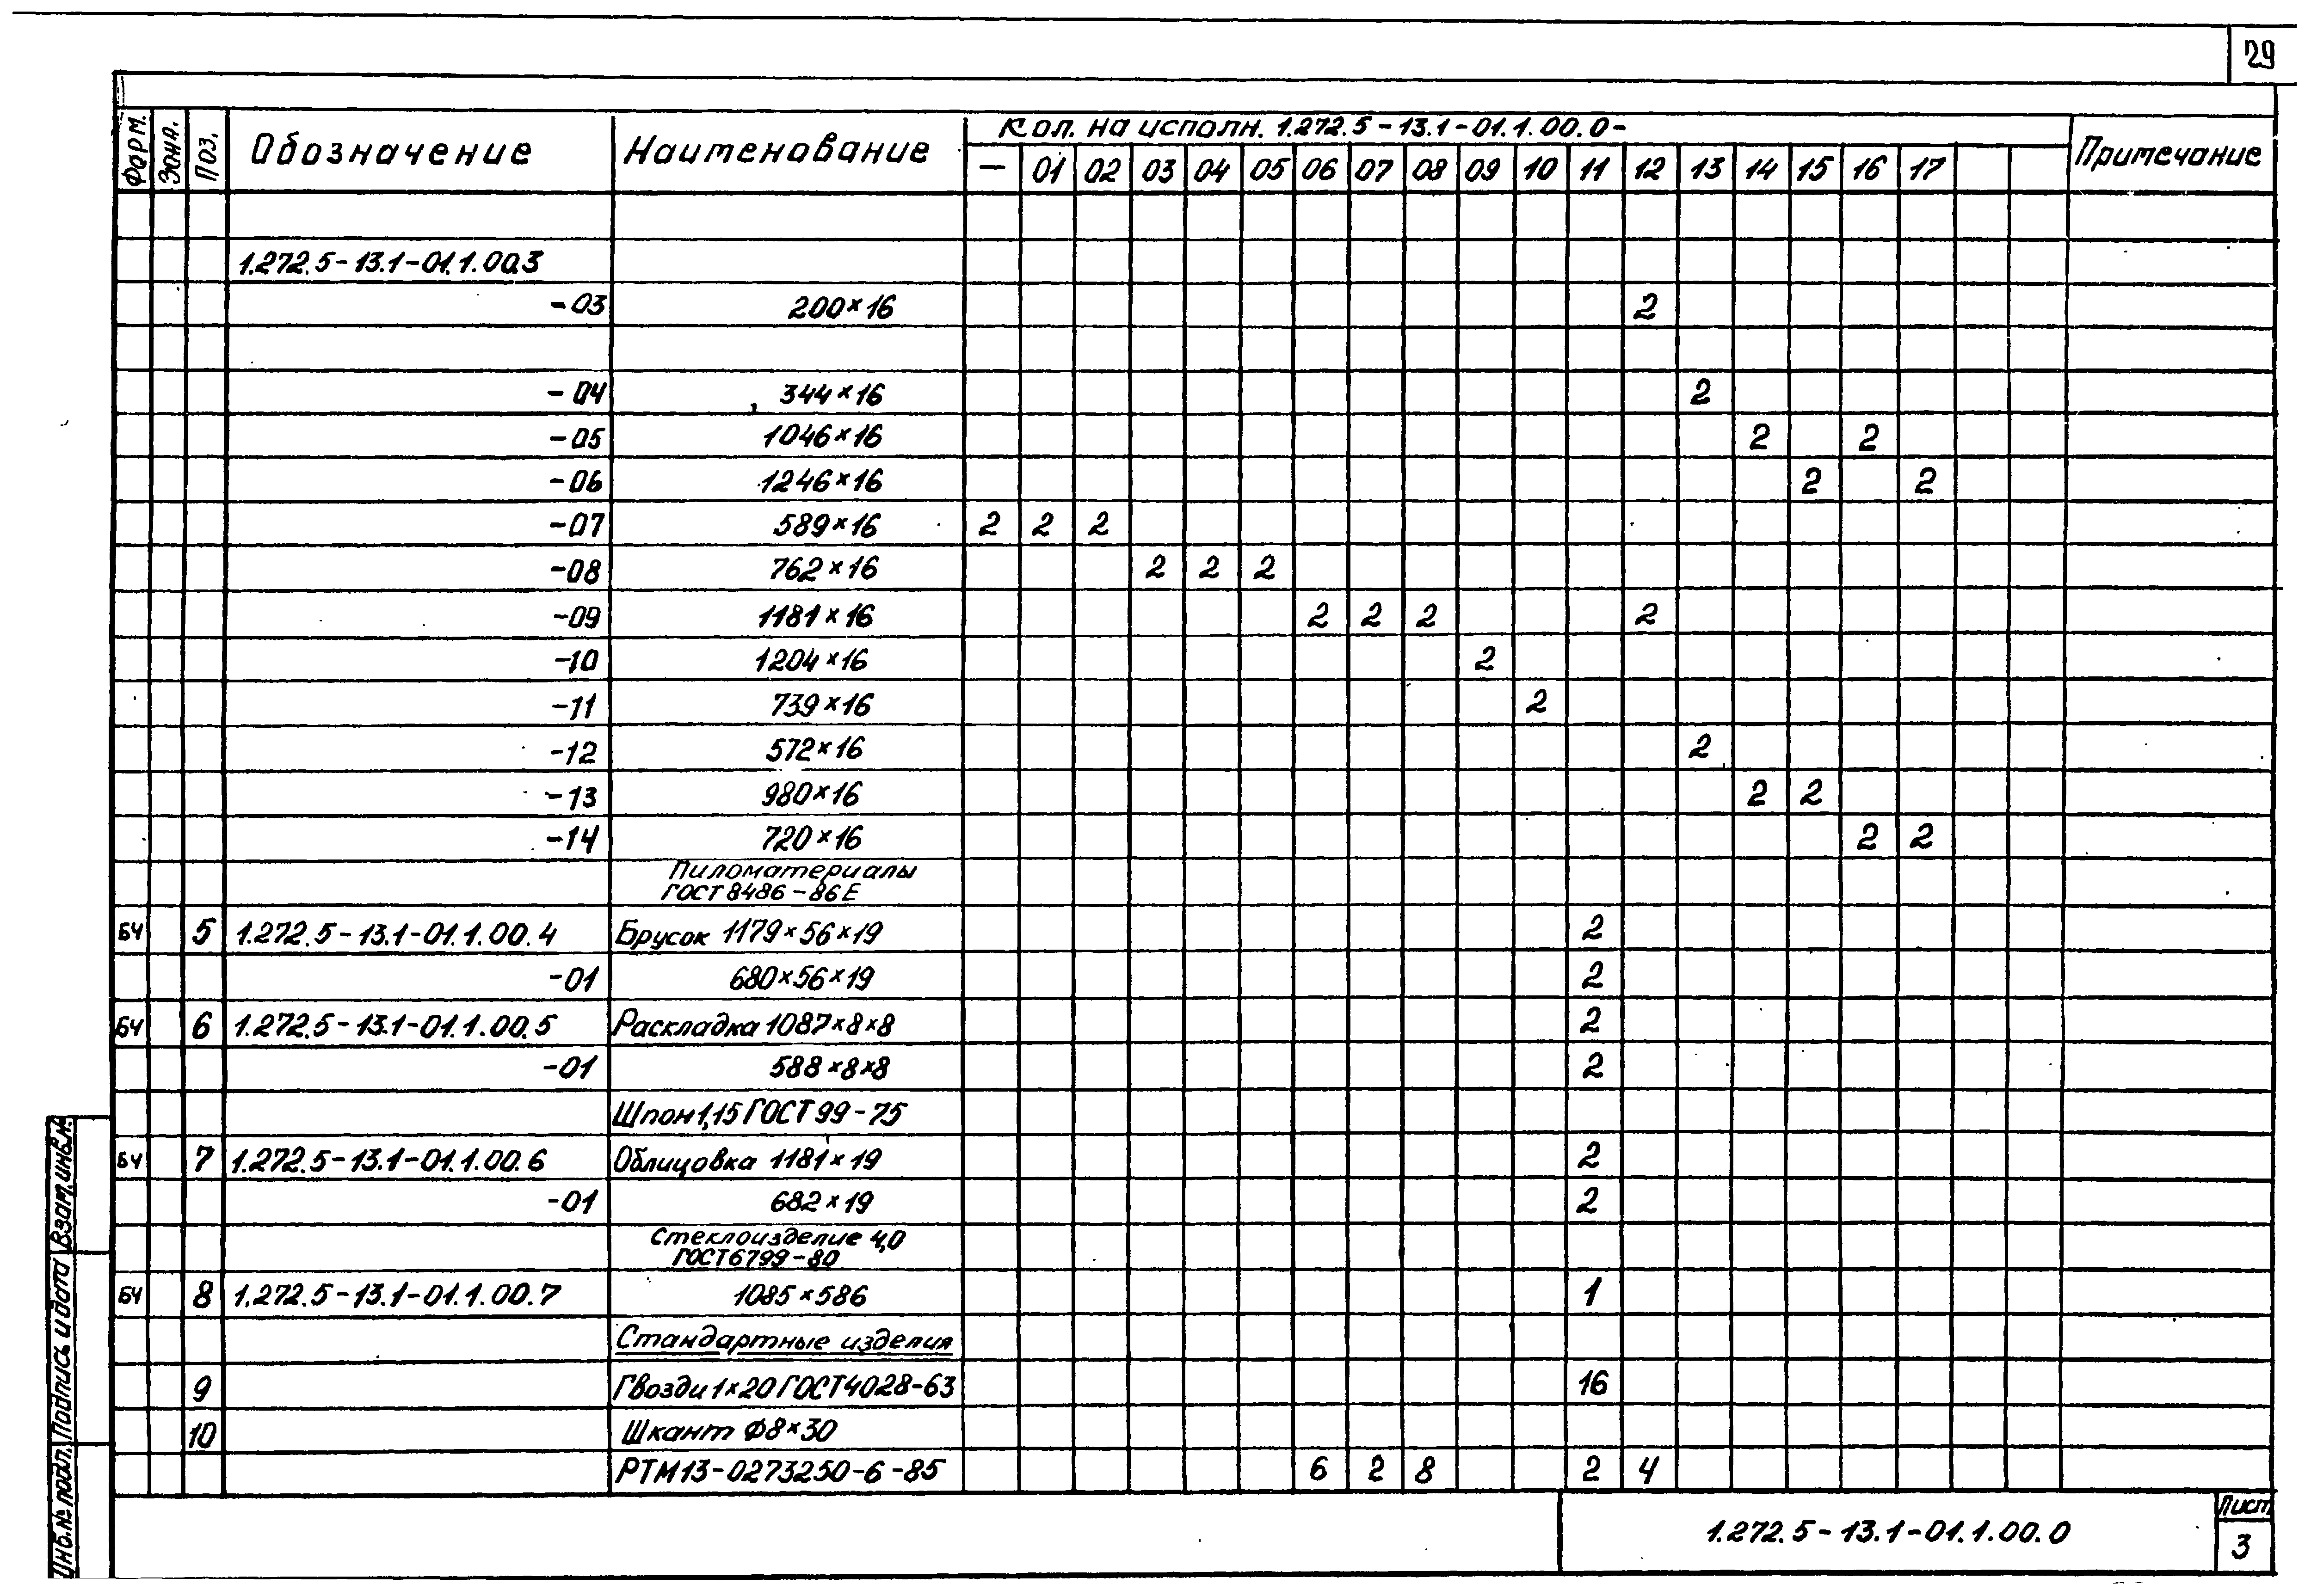 29
Форм. Зона. Поз. Обозначение Наименование Кол. на исполн. 1.272.5-13.1-01.1.00.0- Примечание
— 01 02 03 04 05 06 07 08 09 10 11 12 13 14 15 16 17
1.272.5-13.1-01.1.00.3
-03 200×16 2
-04 344×16 2
-05 1046×16 2 2
-06 1246×16 2 2
-07 589×16 2 2 2
-08 762×16 2 2 2
-09 1181×16 2 2 2 2
-10 1204×16 2
-11 739×16 2
-12 572×16 2
-13 980×16 2 2
-14 720×16 2 2
Пиломатериалы
ГОСТ 8486-86Е
БЧ 5 1.272.5-13.1-01.1.00.4 Брусок 1179×56×19 2
-01 680×56×19 2
БЧ 6 1.272.5-13.1-01.1.00.5 Раскладка 1087×8×8 2
-01 588×8×8 2
Шпон 1,15 ГОСТ 99-75
БЧ 7 1.272.5-13.1-01.1.00.6 Облицовка 1181×19 2
-01 682×19 2
Стеклоизделие 4,0
ГОСТ 6799-80
БЧ 8 1.272.5-13.1-01.1.00.7 1085×586 1
Стандартные изделия
9 Гвозди 1×20 ГОСТ 4028-63 16
10 Шкант Ф8×30
РТМ13-0273250-6-85 6 2 8 2 4
1.272.5-13.1-01.1.00.0
Лист
3
Инв.№ подл. Подпись и дата Взам.инв.№